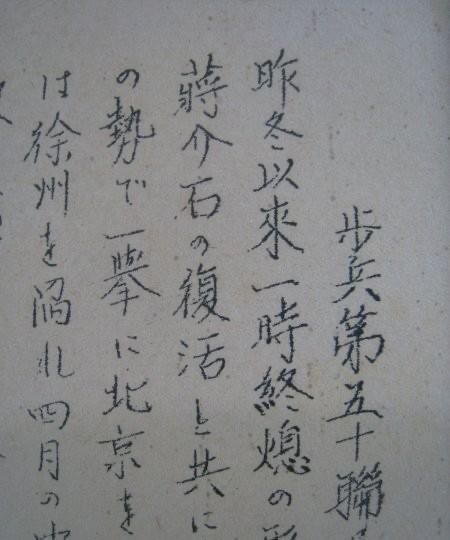 歩兵第五十聯
昨冬以來一時終熄の形
蔣介石の復活と共に
の勢で一擧に北京を
は徐州を陥れ四月の